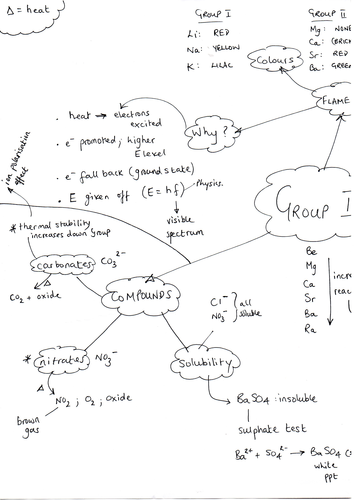 Δ = heat
GROUP I
Li: RED
Na: YELLOW
K: LILAC
GROUP II
Mg: NONE
Ca: (BRICK
Sr: RED
Ba: GREE
Colours
FLAME
Why?
· heat → electrons
excited
· e⁻ promoted; higher
E level
· e⁻ fall back (ground state)
· E given off (E = hf) Physics.
visible
spectrum
polarisation
effect
* thermal stability
increases down group
GROUP I
Be
Mg
Ca
Sr
Ba
Ra
incre
reac
carbonates CO₃²⁻
Δ
CO₂ + oxide
Δ
COMPOUNDS
Cl⁻
NO₃⁻
all
soluble
* nitrates NO₃⁻
Δ
NO₂ ; O₂ ; oxide
brown
gas
Solubility
BaSO₄ : insoluble
sulphate test
Ba²⁺ + SO₄²⁻ → BaSO₄ (s
white
ppt